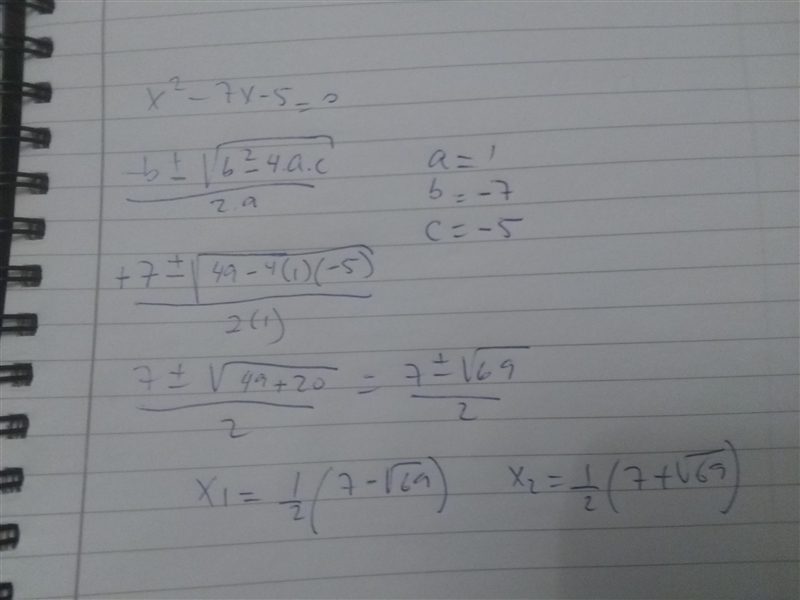 x² - 7x - 5 = 0
-b ± √(b² - 4.a.c) / 2.a
a = 1
b = -7
c = -5
+7 ± √(49 - 4(1)(-5)) / 2(1)
7 ± √(49 + 20) / 2 = 7 ± √69 / 2
x₁ = 1/2 (7 - √69) x₂ = 1/2 (7 + √69)